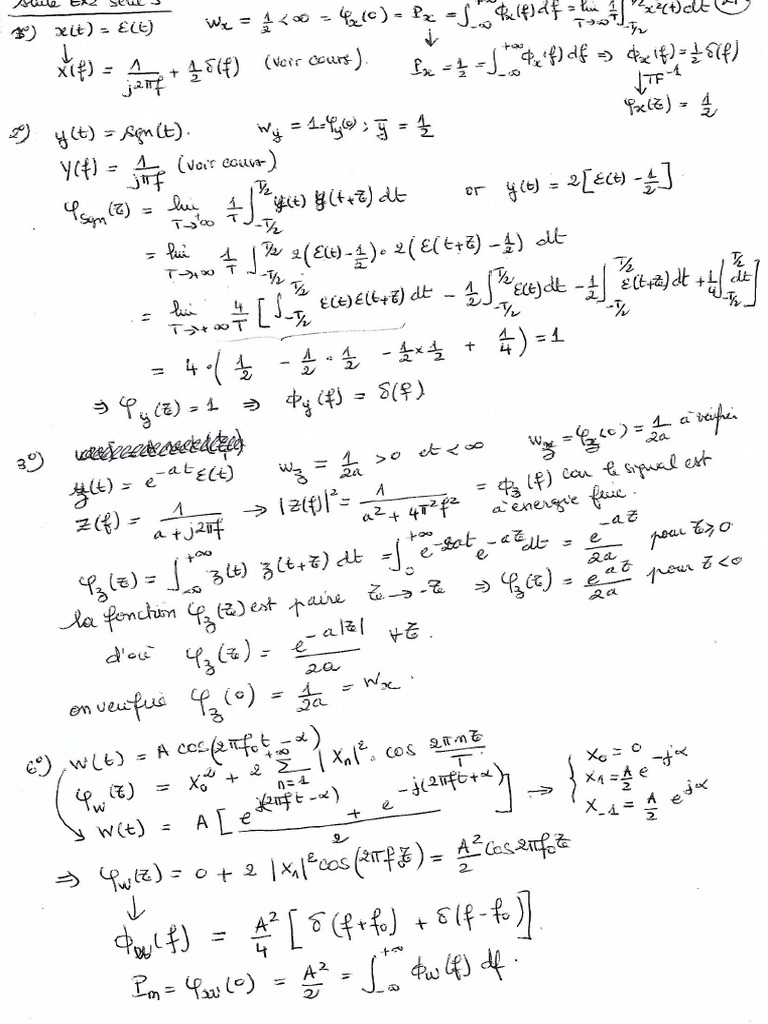 Suite Ex2 Série 3
1°) x(t) = ε(t)    W_x = 1/2 < ∞ = φ_x(0) = P_x = ∫_{-∞}^{+∞} Φ_x(f) df = lim_{T→∞} 1/T ∫_{-T/2}^{T/2} x²(t) dt
↓    ↓
X(f) = 1/(j2πf) + 1/2 δ(f) (voir cours).    P_x = 1/2 = ∫_{-∞}^{+∞} Φ_x(f) df ⇒ Φ_x(f) = 1/2 δ(f)
↓ TF⁻¹
φ_x(τ) = 1/2
2°) y(t) = sgn(t).    W_y = 1 = φ_y(0) ; ȳ = 1/2
Y(f) = 1/(jπf) (voir cours)
φ_sgn(τ) = lim_{T→+∞} 1/T ∫_{-T/2}^{T/2} y(t) y(t+τ) dt    or y(t) = 2[ε(t) - 1/2]
= lim_{T→+∞} 1/T ∫_{-T/2}^{T/2} 2(ε(t) - 1/2) · 2(ε(t+τ) - 1/2) dt
= lim_{T→+∞} 4/T [∫_{-T/2}^{T/2} ε(t) ε(t+τ) dt - 1/2 ∫_{-T/2}^{T/2} ε(t) dt - 1/2 ∫_{-T/2}^{T/2} ε(t+τ) dt + 1/4 ∫_{-T/2}^{T/2} dt]
= 4 · (1/2 - 1/2 · 1/2 - 1/2 × 1/2 + 1/4) = 1
⇒ φ_y(τ) = 1 ⇒ Φ_y(f) = δ(f)
3°) z(t) = e^{-at} ε(t)    W_z = 1/2a > 0 et < ∞    W_z = φ_z(0) = 1/2a à vérifier
Z(f) = 1/(a + j2πf) → |Z(f)|² = 1/(a² + 4π²f²) = Φ_z(f) car le signal est à énergie finie.
φ_z(τ) = ∫_{-∞}^{+∞} z(t) z(t+τ) dt = ∫_0^{+∞} e^{-2at} e^{-aτ} dt = e^{-aτ}/2a pour τ ≥ 0
la fonction φ_z(τ) est paire τ → -τ ⇒ φ_z(τ) = e^{aτ}/2a pour τ < 0
d'où φ_z(τ) = e^{-a|τ|}/2a ∀τ.
on vérifie φ_z(0) = 1/2a = W_x.
6°) W(t) = A cos(2πf₀t - α)
φ_W(τ) = X₀² + 2 Σ_{n=1}^{+∞} |X_n|² · cos 2πnτ/T
W(t) = A [ (e^{j(2πft - α)} + e^{-j(2πft + α)})/2 ] → { X₀ = 0
X₁ = A/2 e^{-jα}
X₋₁ = A/2 e^{jα}
⇒ φ_W(τ) = 0 + 2 |X₁|² cos(2πf₀τ) = A²/2 cos 2πf₀τ
↓
Φ_W(f) = A²/4 [δ(f+f₀) + δ(f-f₀)].
P_m = φ_W(0) = A²/2 = ∫_{-∞}^{+∞} Φ_W(f) df.